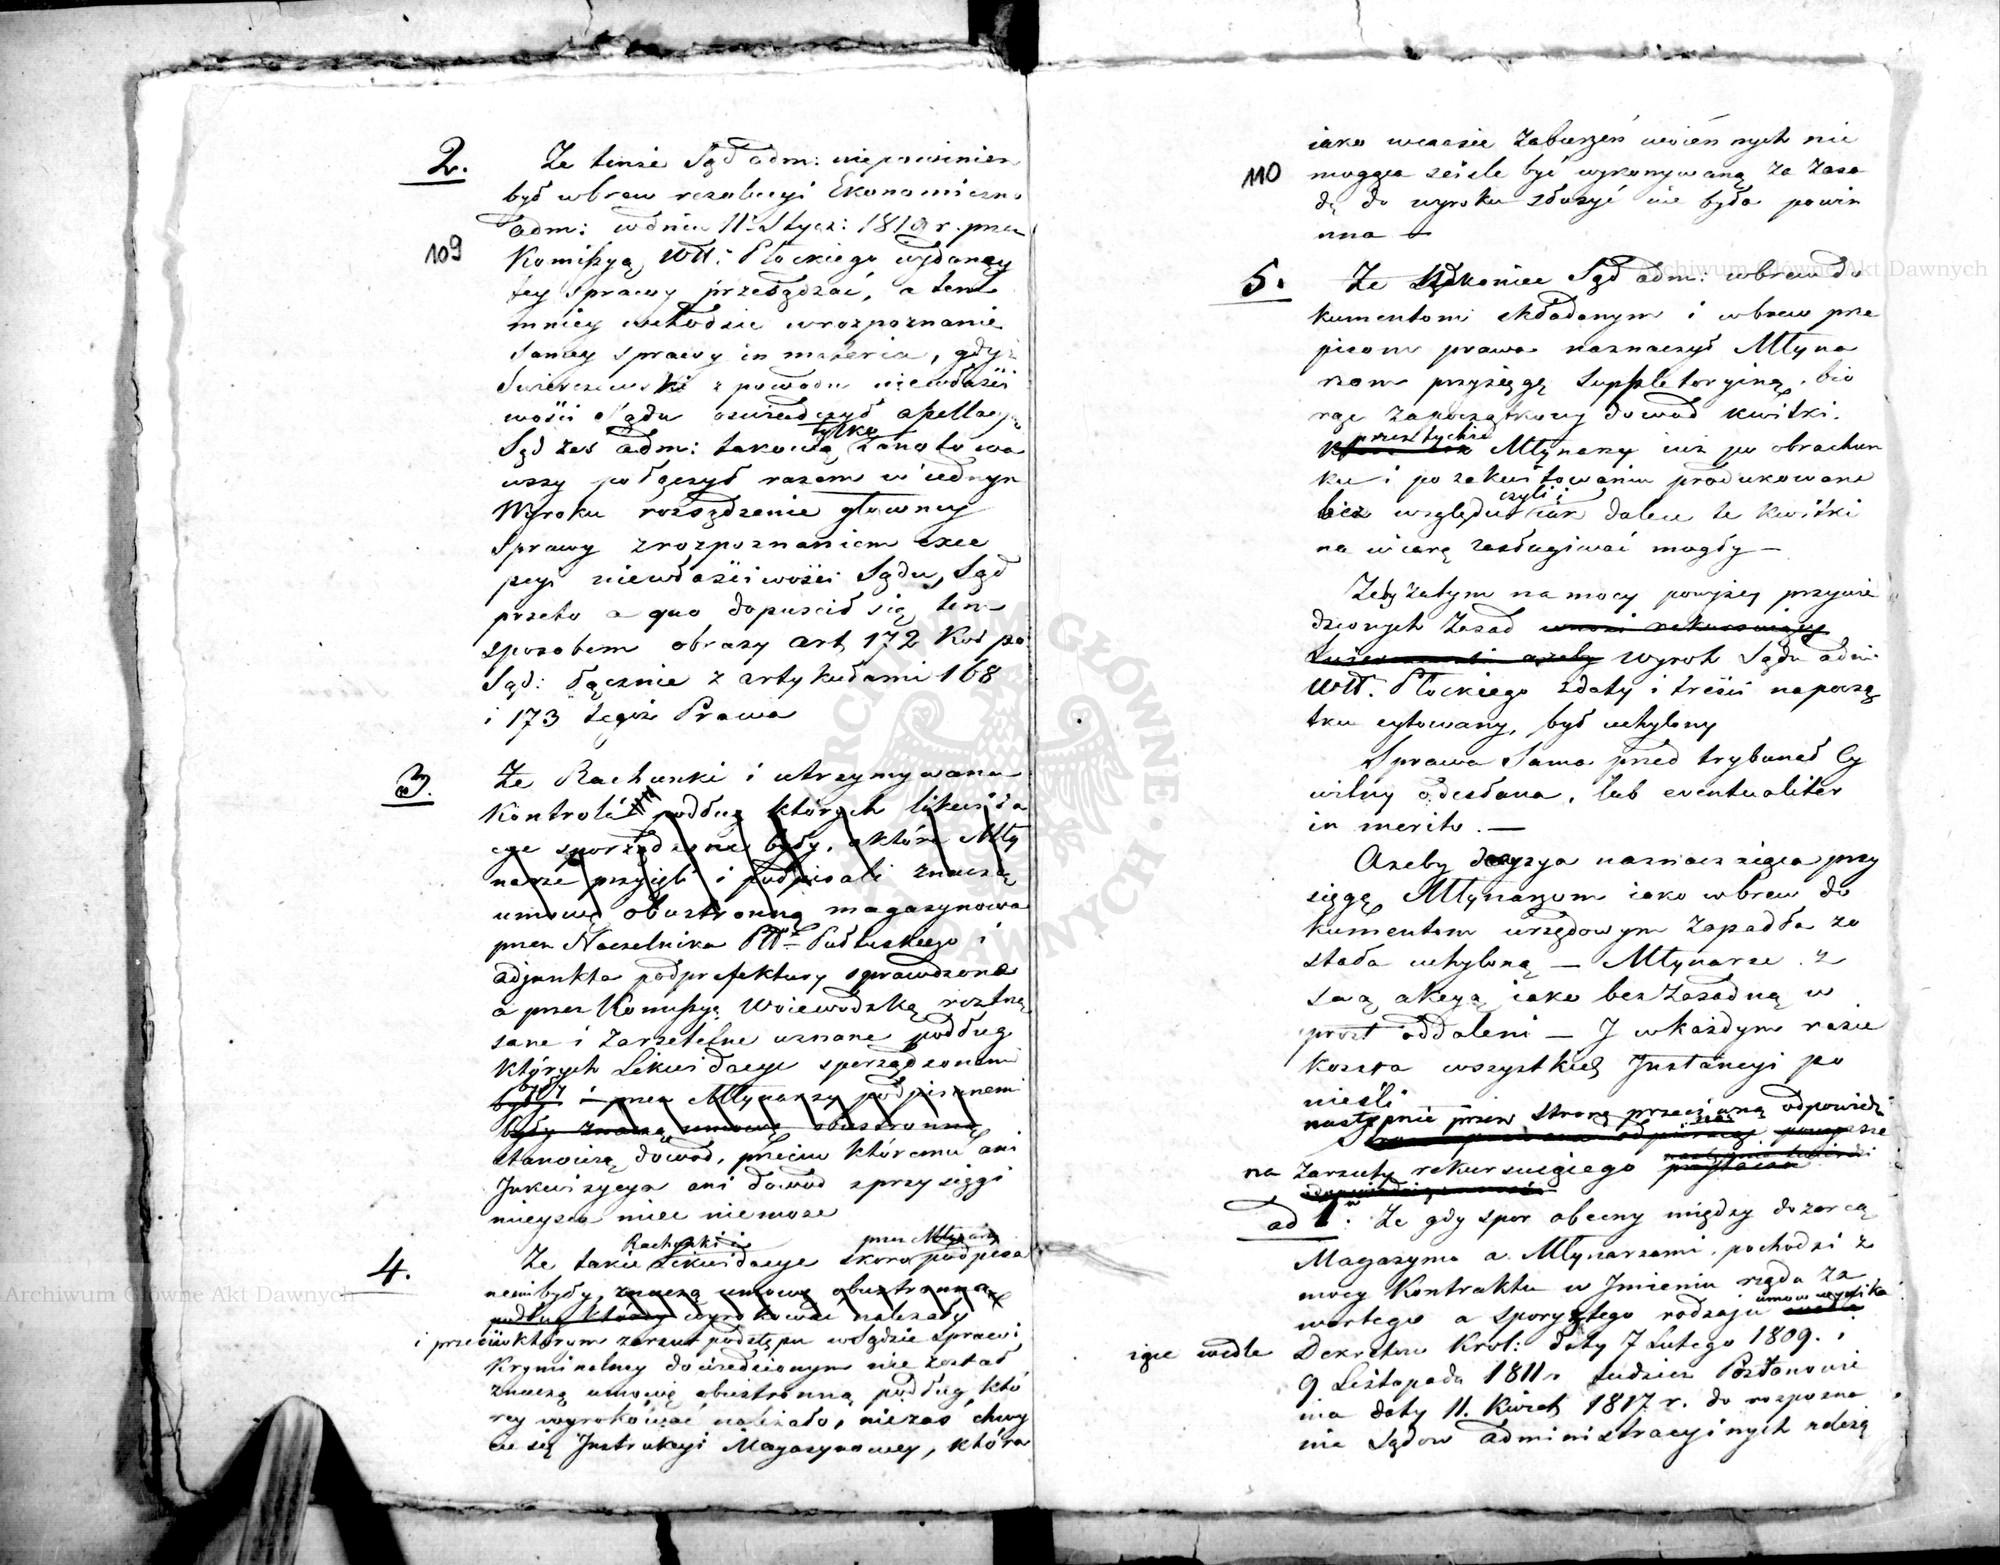 2. Że tenże Sąd adm: niepowinien
był wbrew rezolucyi Ekonomiczno
adm: w dniu 11. Stycz: 1819 r. przez
109
Kommissyą Wtt: Płockiego wydaney
tey sprawy przesądzać, a tem
mniey wchodzić w rozpoznanie
samey sprawy in materia, gdyż
Swierczewski z powodu niewłaści
wości Sądu oświadczył apellacyą
tylko
Sąd zaś adm: takową zanotowa
wszy połączył razem w iednym
Wyroku rozsądzenie głowney
Sprawy z rozpoznaniem exce
pcyi niewłaściwości Sądu, Sąd
przeto a quo dopuscił się tem
sposobem obrazy art 172 Kod po:
Sąd: łącznie z artykułami 168
i 173 tegoż Prawa
3. Że Rachunki i utrzymywana
Kontrola podług których likwida
cye sporządzone były, a które Mły
narze przyięli i podpisali znaczą
umowę obustronną magazynowa
przez Naczelnika Ptt Pułtuskiego i
adjunkta podprefektury sprawdzone
a przez Kommissyą Woiewodzką roztrzą
sane i za rzetelne uznane podług
których Likwidacye sporządzonemi
były i przez Młynarzy podpisanemi
były znaczą umowę obustronną
stanowią dowod, przeciw któremu ani
Inkwizycya ani dowod z przysięgi
mieysca mieć niemoże
Rachunki i przez Młynarzy
4. Że takie Likwidacye skoro podpisa
nemi były, znaczą umowę obustronną
podług którey wyrokować należały
i przeciw którym zarzut podstępu w Sądzie Sprawi
Kryminalney dowiedzionym nie został
znaczą umowę obustronną podług któ
rey wyrokować należało, nie zaś chwy
cić się Instrukcyi Magazynowey, która
iako w czasie zaburzeń woiennych nie
110
mogąca ściśle być wykonywaną za zasa
dę do wyroku służyć nie była powin
nna —
5. Że nakoniec Sąd adm: wbrew do
kumentom składanym i wbrew prze
pisom prawa naznaczył Młyna
rzom przysięgę Suppletoryiną, bio
rąc za początkowy dowod kwitki.
przez tychże
Młynarzy iuż po obrachun
ku i po zakwitowaniu produkowane
czyli i
bez względu iak dalece te kwitki
na wiarę zasługiwać mogły —
Żeby zatym na mocy powyżey przywie
dzionych Zasad wnosi rekurruiący
Swierczewski ażeby wyrok Sądu adm:
Wtt. Płockiego z daty i treści na począ
tku cytowany, był uchylony
Sprawa Sama przed trybunał Cy
wilny odesłana, lub eventualiter
in merito. —
Ażeby decyzya naznaczaiąca przy
sięgę Młynarzom iako wbrew do
kumentom urzędowym zapadła zo
stała uchyloną — Młynarze z
swą akcyą iako bezzasadną w
prost oddaleni — I w każdym razie
koszta wszystkich Instancyi po
nieśli
następnie przez stronę przeciwną odpowiedź
na zarzuty rekursuiącego
ad 1. Że gdy spor obecny między dozorcą
Magazynu a Młynarzami, pochodzi z
mocy Kontraktu w Imieniu rządu za
wartego a spory tego rodzaju umow wynika
iące wedle Dekretow Krol: daty 7 Lutego 1809. i
9 Listopada 1811 r. tudzież Postanowie
nia daty 11. Kwiet 1817 r. do rozpozna
nia Sądow administracyinych należą